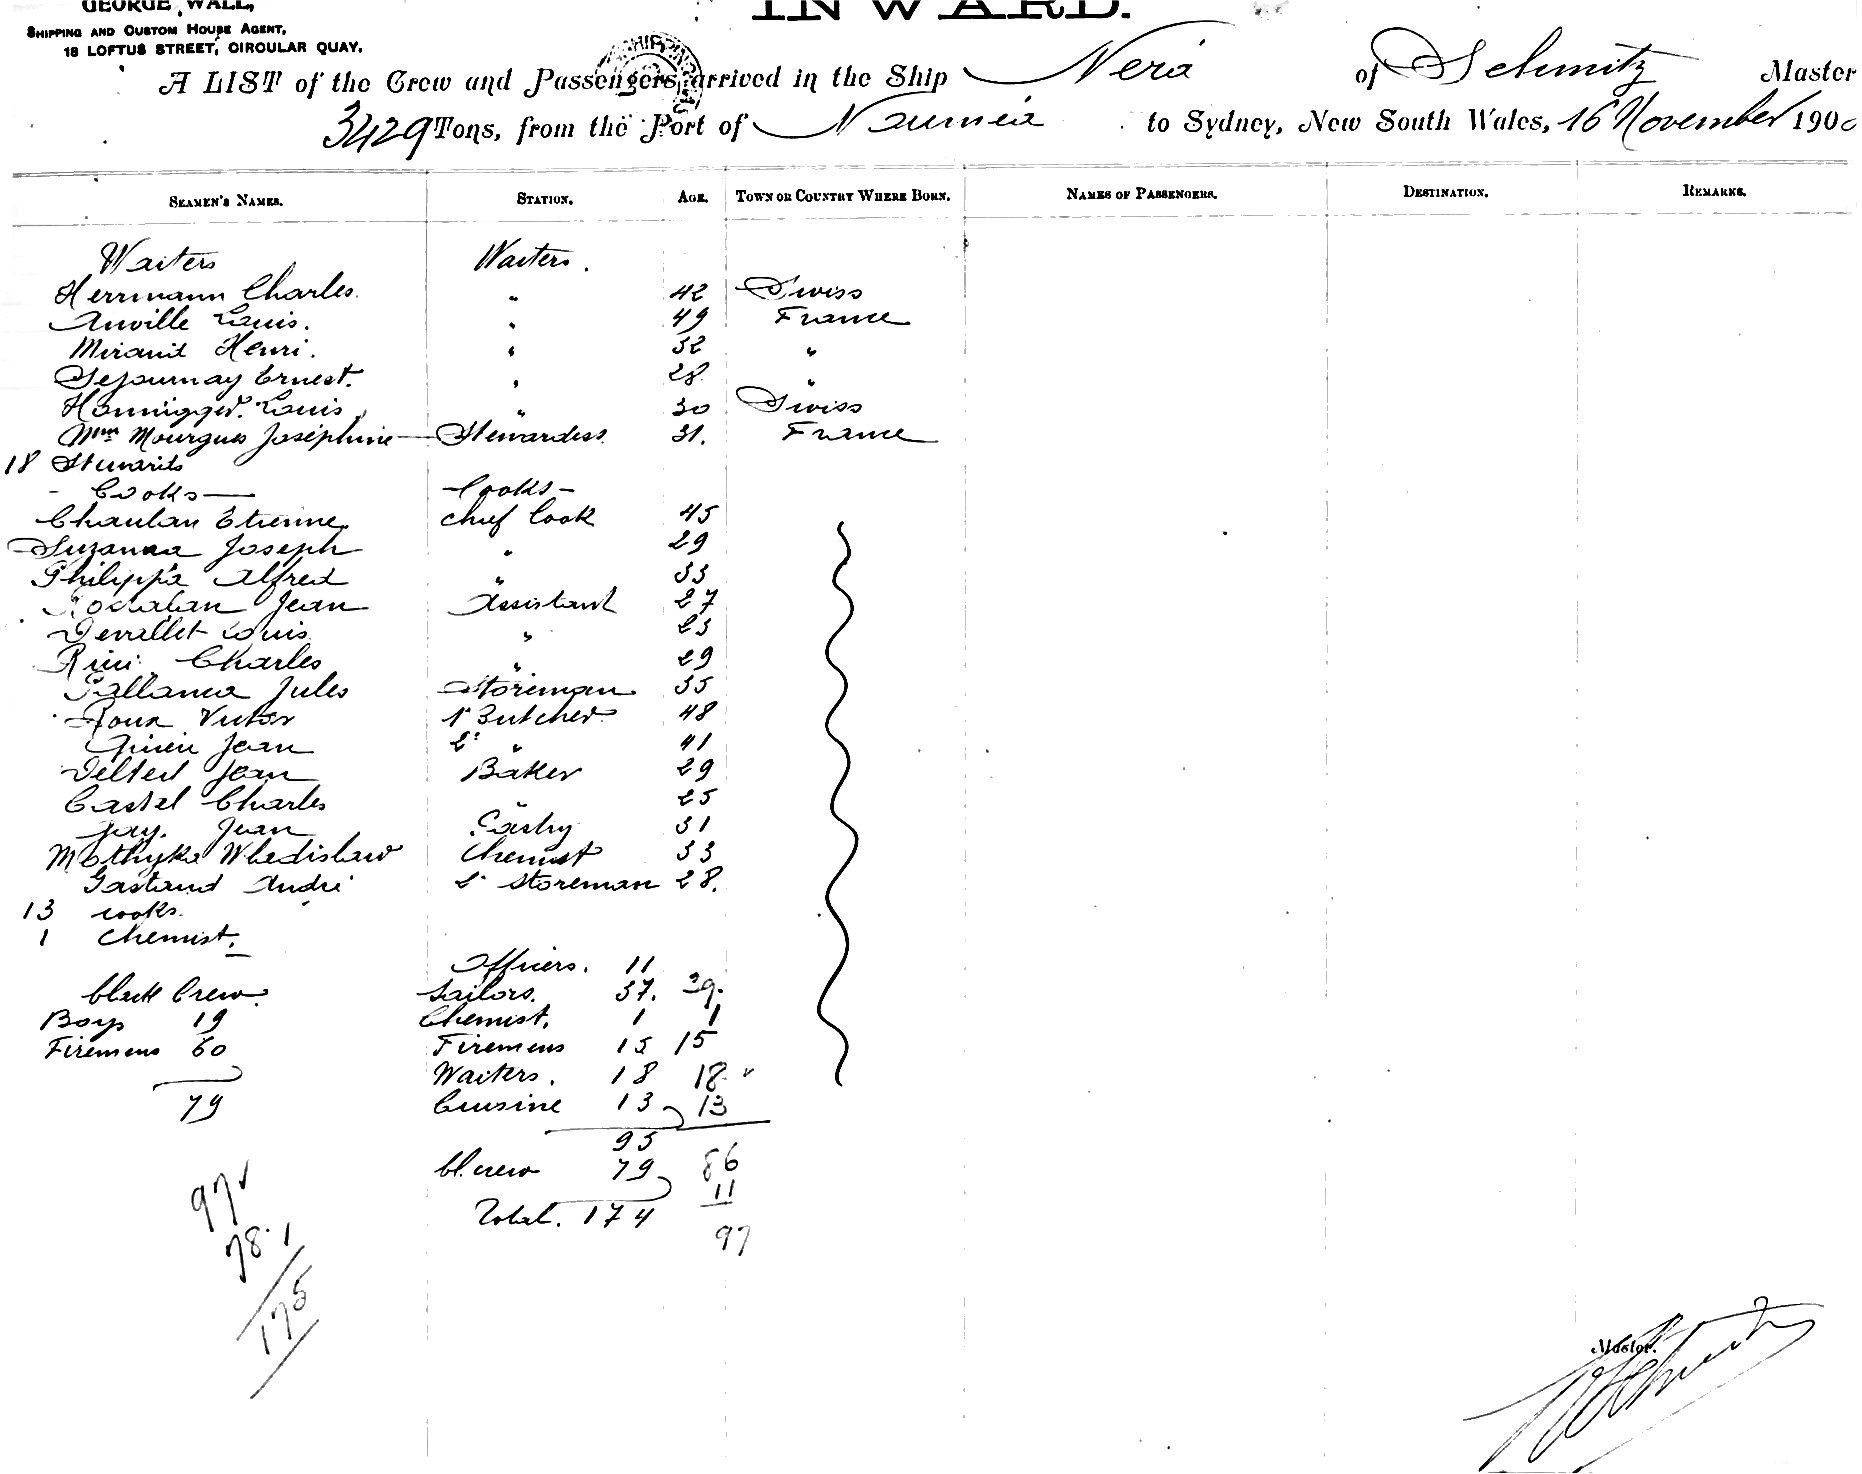 GEORGE WALL,
SHIPPING AND CUSTOM HOUSE AGENT,
18 LOFTUS STREET, CIRCULAR QUAY.
INWARD.
A LIST of the Crew and Passengers arrived in the Ship Nera of Schmitz Master
3429 Tons, from the Port of Noumea to Sydney, New South Wales, 16 November 190
SEAMEN'S NAMES. STATION. AGE. TOWN OR COUNTRY WHERE BORN. NAMES OF PASSENGERS. DESTINATION. REMARKS.
Waiters Waiters.
Herrmann Charles. " 42 Swiss
Anville Louis. " 49 France
Henri. " 32 "
Sejournay Ernest. " 28 "
Louis " 30 Swiss
Mme Mourgues Joséphine Stewardess 31. France
18 Stewards
- Cooks — Cooks -
Chaulan Etienne chief Cook 45
Suzanna Joseph " 29
Philippa Alfred " 33
Jean Assistant 27
Devallet Louis " 23
Charles " 29
Pallanca Jules Storeman 35
Roux Victor 1r Butcher 48
Jean 2e " 41
Delteil Jean Baker 29
Castel Charles " 25
Jay. Jean Pastry 31
Mathyka Whadislaw Chemist 33
Gastaud André 2e Storeman 28.
13 cooks.
1 Chemist.
Officers. 11
black Crew. Sailors. 37. 39.
Boys 19 Chemist. 1 1
Firemens 60 Firemens 15 15
Waiters. 18 18
79 Cuisine 13 13
95
bl. crew 79 86
11
Total. 174
97
97
78.1
175
Master.